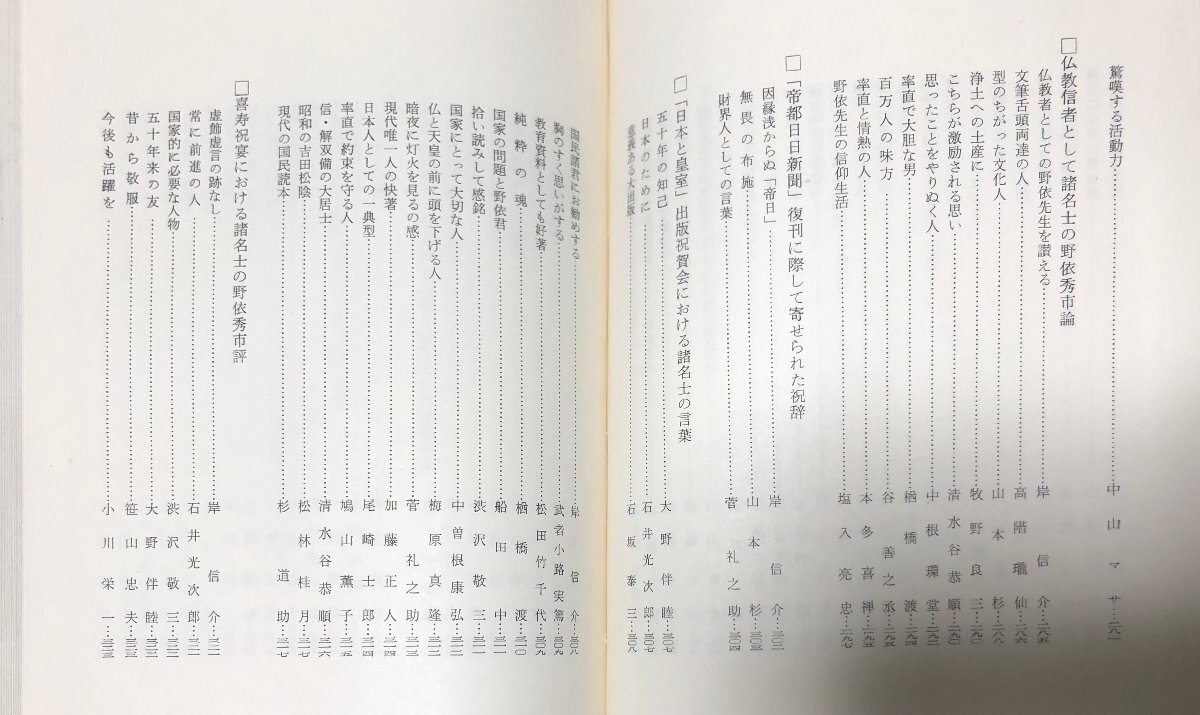 驚嘆する活動力……中山マサ…二八一
□仏教信者として諸名士の野依秀市論
仏教者としての野依先生を讃える……岸信介…二八五
文筆舌頭両達の人……高階瓏仙…二八六
型のちがった文化人……山本杉…二八八
浄土への土産に……牧野良三…二九〇
こちらが激励される思い……清水谷恭順…二九〇
思ったことをやりぬく人……中根環堂…二九二
率直で大胆な男……楢橋渡…二九二
百万人の味方……谷善之丞…二九五
率直と情熱の人……本多喜禅…二九五
野依先生の信仰生活……塩入亮忠…二九七
□「帝都日日新聞」復刊に際して寄せられた祝辞
因縁浅からぬ「帝日」……岸信介…三〇二
無畏の布施……山本杉…三〇三
財界人としての言葉……菅礼之助…三〇四
□「日本と皇室」出版祝賀会における諸名士の言葉
五十年の知己……大野伴睦…三〇七
日本のために……石井光次郎…三〇七
意義ある大出版……石坂泰三…三〇八
国民諸君にお勧めする……岸信介…三〇八
胸のすく思いがする……武者小路実篤…三〇九
教育資料としても好著……松田竹千代…三〇九
純粋の魂……楢橋渡…三一〇
国家の問題と野依君……船田中…三一一
拾い読みして感銘……渋沢敬三…三一一
国家にとって大切な人……中曽根康弘…三一二
仏と天皇の前に頭を下げる人……梅原真隆…三一二
暗夜に灯火を見るの感……菅礼之助…三一三
現代唯一人の快著……加藤正人…三一四
日本人としての一典型……尾崎士郎…三一四
率直で約束を守る人……鳩山薫子…三一五
信・解双備の大居士……清水谷恭順…三一六
昭和の吉田松陰……松林桂月…三一七
現代の国民読本……杉道助…三一七
□喜寿祝宴における諸名士の野依秀市評
虚飾虚言の跡なし……岸信介…三二一
常に前進の人……石井光次郎…三二一
国家的に必要な人物……渋沢敬三…三二二
五十年来の友……大野伴睦…三二二
昔から敬服……笹山忠夫…三二三
今後も活躍を……小川栄一…三二三